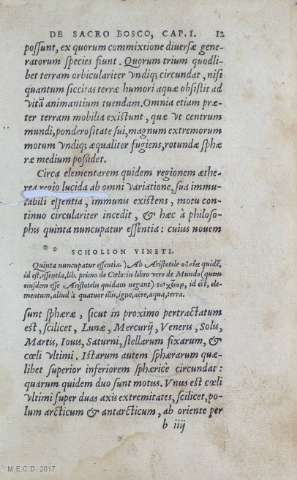 DE SACRO BOSCO, CAP. I. 12
possunt, ex quorum commixtione diuersæ gene-
ratorum species fiunt. Quorum trium quodli-
bet terram orbiculariter vndiq; circundat, nisi
quantum siccitas terræ humori aquæ obsistit ad
vitā animantium tuendam. Omnia etiam præ-
ter terram mobilia existunt, quæ vt centrum
mundi, ponderositate sui, magnum extremorum
motum vndiq; æqualiter fugiens, rotundæ sphæ
ræ medium possidet.
Circa elementarem quidem regionem æthe-
rea regio lucida ab omni variatione, sua immu-
tabili essentia, immunis existens, motu con-
tinuo circulariter incedit, & hæc à philoso-
phis quinta nuncupatur essentia: cuius nouem
SCHOLION VINETI.
Quinta nuncupatur essentia.) Ab Aristotele quidē,
id est, essentia, lib. primo de Cœlo: in libro vero de Mundo (quem
eiusdem esse Aristotelis quidam negant) id est, ele-
mentum, aliud à quatuor illis, igne, aere, aqua, terra.
sunt sphæræ, sicut in proximo pertractatum
est, scilicet, Lunæ, Mercurij, Veneris, Solis,
Martis, Iouis, Saturni, stellarum fixarum, &
cœli vltimi. Istarum autem sphærarum quæ-
libet superior inferiorem sphæricè circundat:
quarum quidem duo sunt motus. Vnus est cœli
vltimi super duas axis extremitates, scilicet, po-
lum arcticum & antarcticum, ab oriente per
b iiij
M.E.C.D. 2017